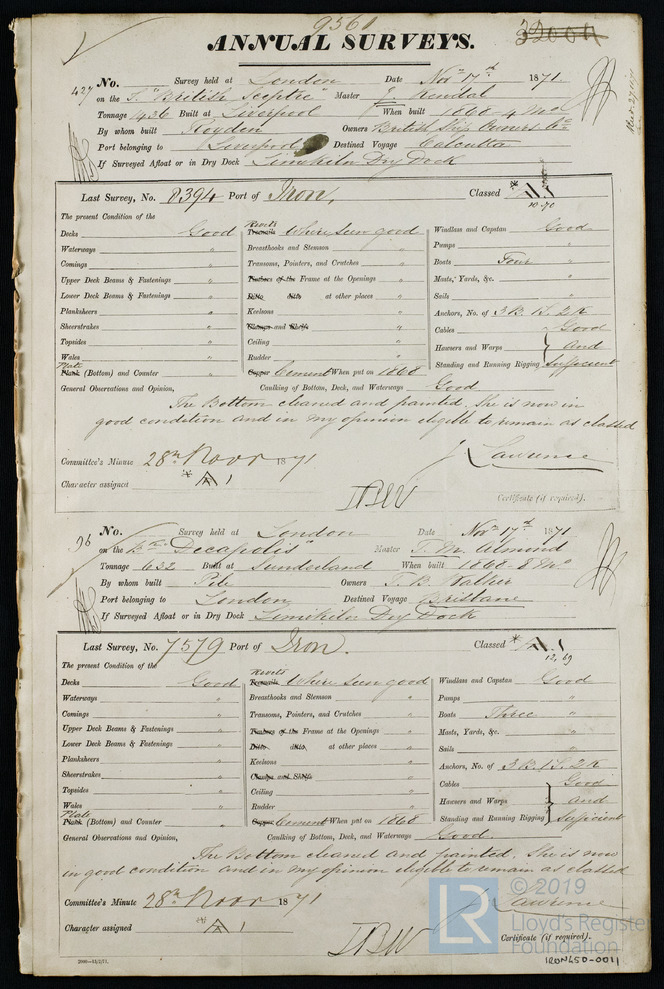 9361
ANNUAL SURVEYS.
427 No. Survey held at London Date Novr 17th 1871
on the S. "British Sceptre" Master J. Kendal
Tonnage 1436 Built at Liverpool When built 1868-4 Mo
By whom built Royden Owners British Ship Owners Co
Port belonging to Liverpool Destined Voyage Calcutta
If Surveyed Afloat or in Dry Dock Limekiln Dry Dock
Last Survey, No. 8394 Port of Iron, Classed A1
10.70
The present Condition of the
Decks Good Rivets Treenails Where seen good Windlass and Capstan Good
Waterways " Breasthooks and Stemson " Pumps "
Comings " Transoms, Pointers, and Crutches " Boats Four "
Upper Deck Beams & Fastenings " Timbers of the Frame at the Openings " Masts, Yards, &c. "
Lower Deck Beams & Fastenings " Ditto ditto at other places " Sails "
Planksheers " Keelsons " Anchors, No. of 3 B. 1 S. 2 K
Sheerstrakes " Clamps and Shelfs " Cables Good
Topsides " Ceiling " Hawsers and Warps and
Wales " Rudder " Standing and Running Rigging Sufficient
Plate Plank (Bottom) and Counter " Copper Cement When put on 1868
General Observations and Opinion, Caulking of Bottom, Deck, and Waterways Good
The Bottom cleaned and painted. She is now in
good condition and in my opinion eligible to remain as classed
J Lawrence
Committee's Minute 28th Novr 1871
Character assigned * A 1
Certificate (if required).
96 No. Survey held at London Date Novr 17th 1871
on the "Decapolis" Master T. M. Almond
Tonnage 632 Built at Sunderland When built 1868-8 Mo
By whom built Pile Owners T. B. Walker
Port belonging to London Destined Voyage Brisbane
If Surveyed Afloat or in Dry Dock Limekiln Dry Dock
Last Survey, No. 7579 Port of Iron. Classed * A 1
12,69
The present Condition of the
Decks Good Rivets Treenails Where seen good Windlass and Capstan Good
Waterways " Breasthooks and Stemson " Pumps "
Comings " Transoms, Pointers, and Crutches " Boats Three "
Upper Deck Beams & Fastenings " Timbers of the Frame at the Openings " Masts, Yards, &c. "
Lower Deck Beams & Fastenings " Ditto ditto, at other places " Sails "
Planksheers " Keelsons " Anchors, No. of 3 B. 1 S. 2 K
Sheerstrakes " Clamps and Shelfs Cables Good
Topsides " Ceiling " Hawsers and Warps and
Wales " Rudder " Standing and Running Rigging Sufficient
Plate Plank (Bottom) and Counter " Copper Cement When put on 1868
General Observations and Opinion, Caulking of Bottom, Deck, and Waterways Good.
The Bottom cleaned and painted. She is now
in good condition and in my opinion eligible to remain as classed
J Lawrence
Committee's Minute 28th Novr 1871
Character assigned A 1
Certificate (if required).
2000—13/2/71.
LR © 2019
Lloyd's Register
Foundation
IRON450-0011